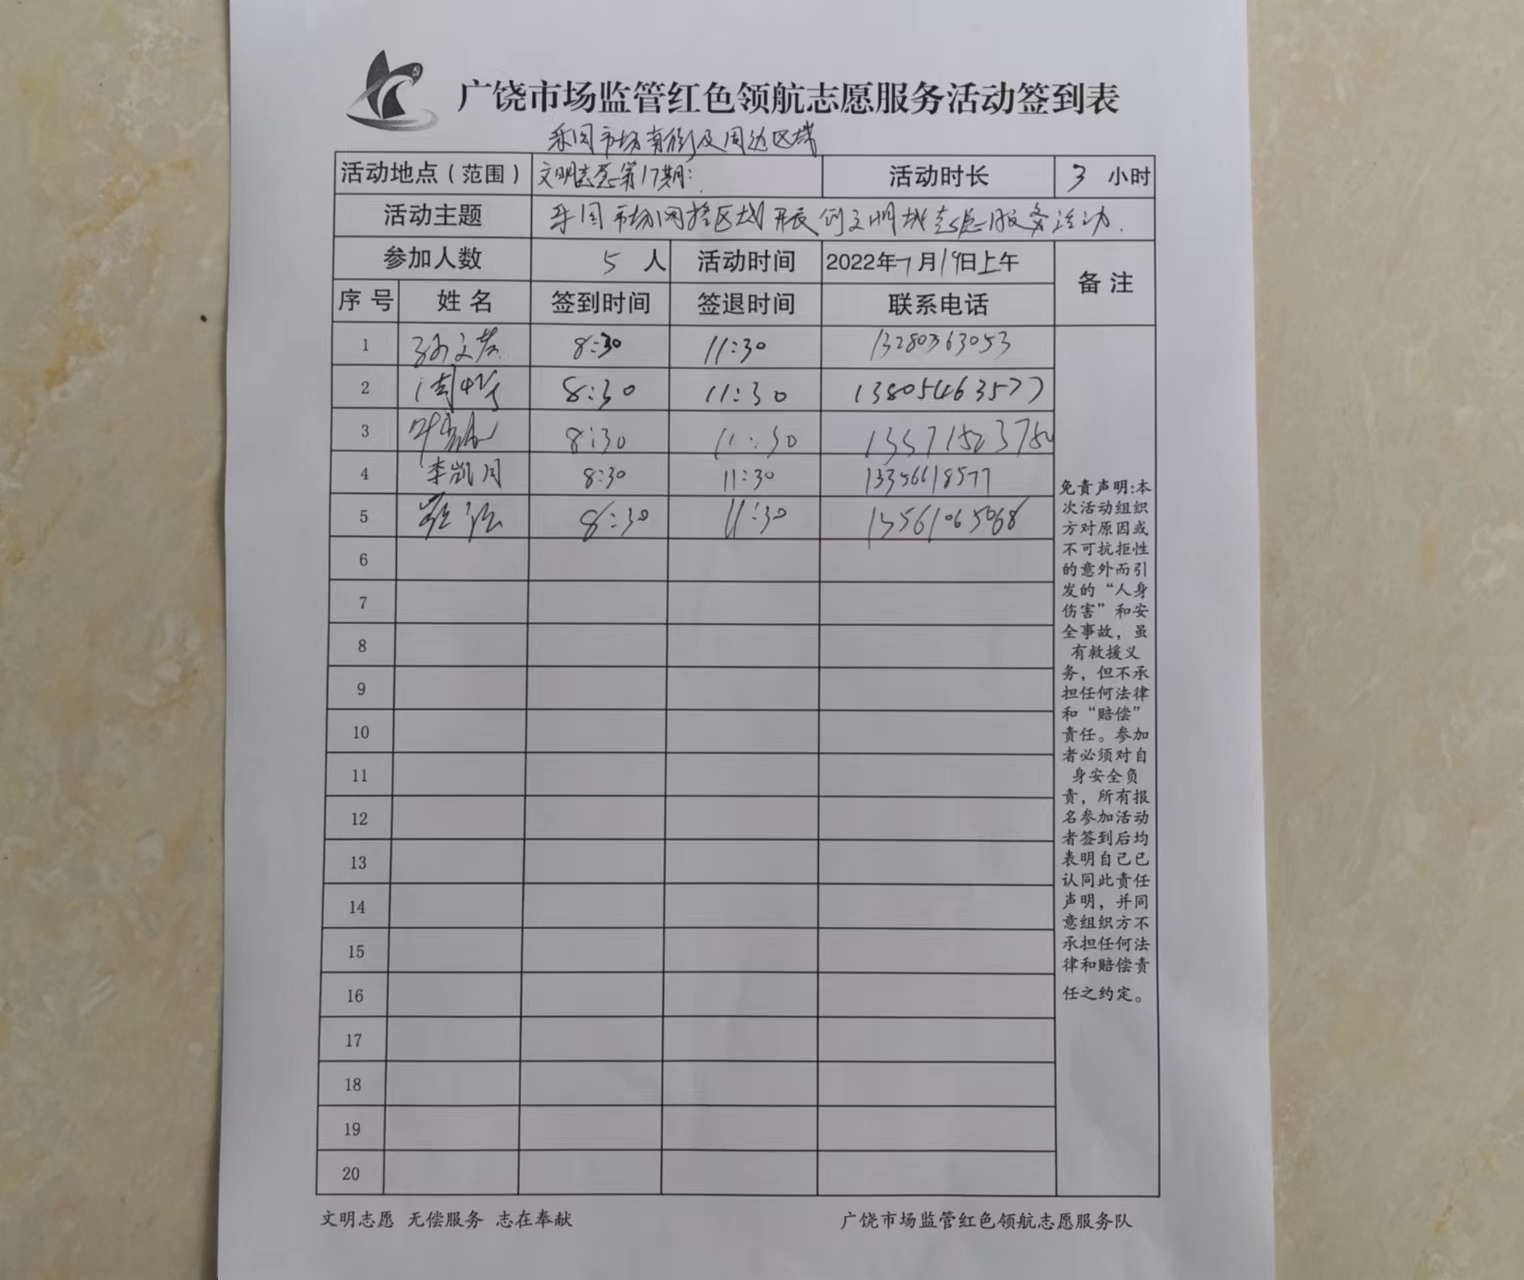 广饶市场监管红色领航志愿服务活动签到表
市场南街及周边区域
活动地点（范围） 文明志愿第17期: 活动时长 3 小时
活动主题 市场网格区域开展创文明城志愿服务活动.
参加人数 5 人 活动时间 2022年7月19日上午 备注
序号 姓名 签到时间 签退时间 联系电话
1 8:30 11:30 13280363053
2 8:30 11:30 13805463577
3 8:30 11:30
4 李凯月 8:30 11:30 13356618577
5 8:30 11:30 13561065068
6
7
8
9
10
11
12
13
14
15
16
17
18
19
20
免责声明:本
次活动组织
方对原因或
不可抗拒性
的意外而引
发的“人身
伤害”和安
全事故，虽
有救援义
务，但不承
担任何法律
和“赔偿”
责任。参加
者必须对自
身安全负
责，所有报
名参加活动
者签到后均
表明自己已
认同此责任
声明，并同
意组织方不
承担任何法
律和赔偿责
任之约定。
文明志愿 无偿服务 志在奉献 广饶市场监管红色领航志愿服务队